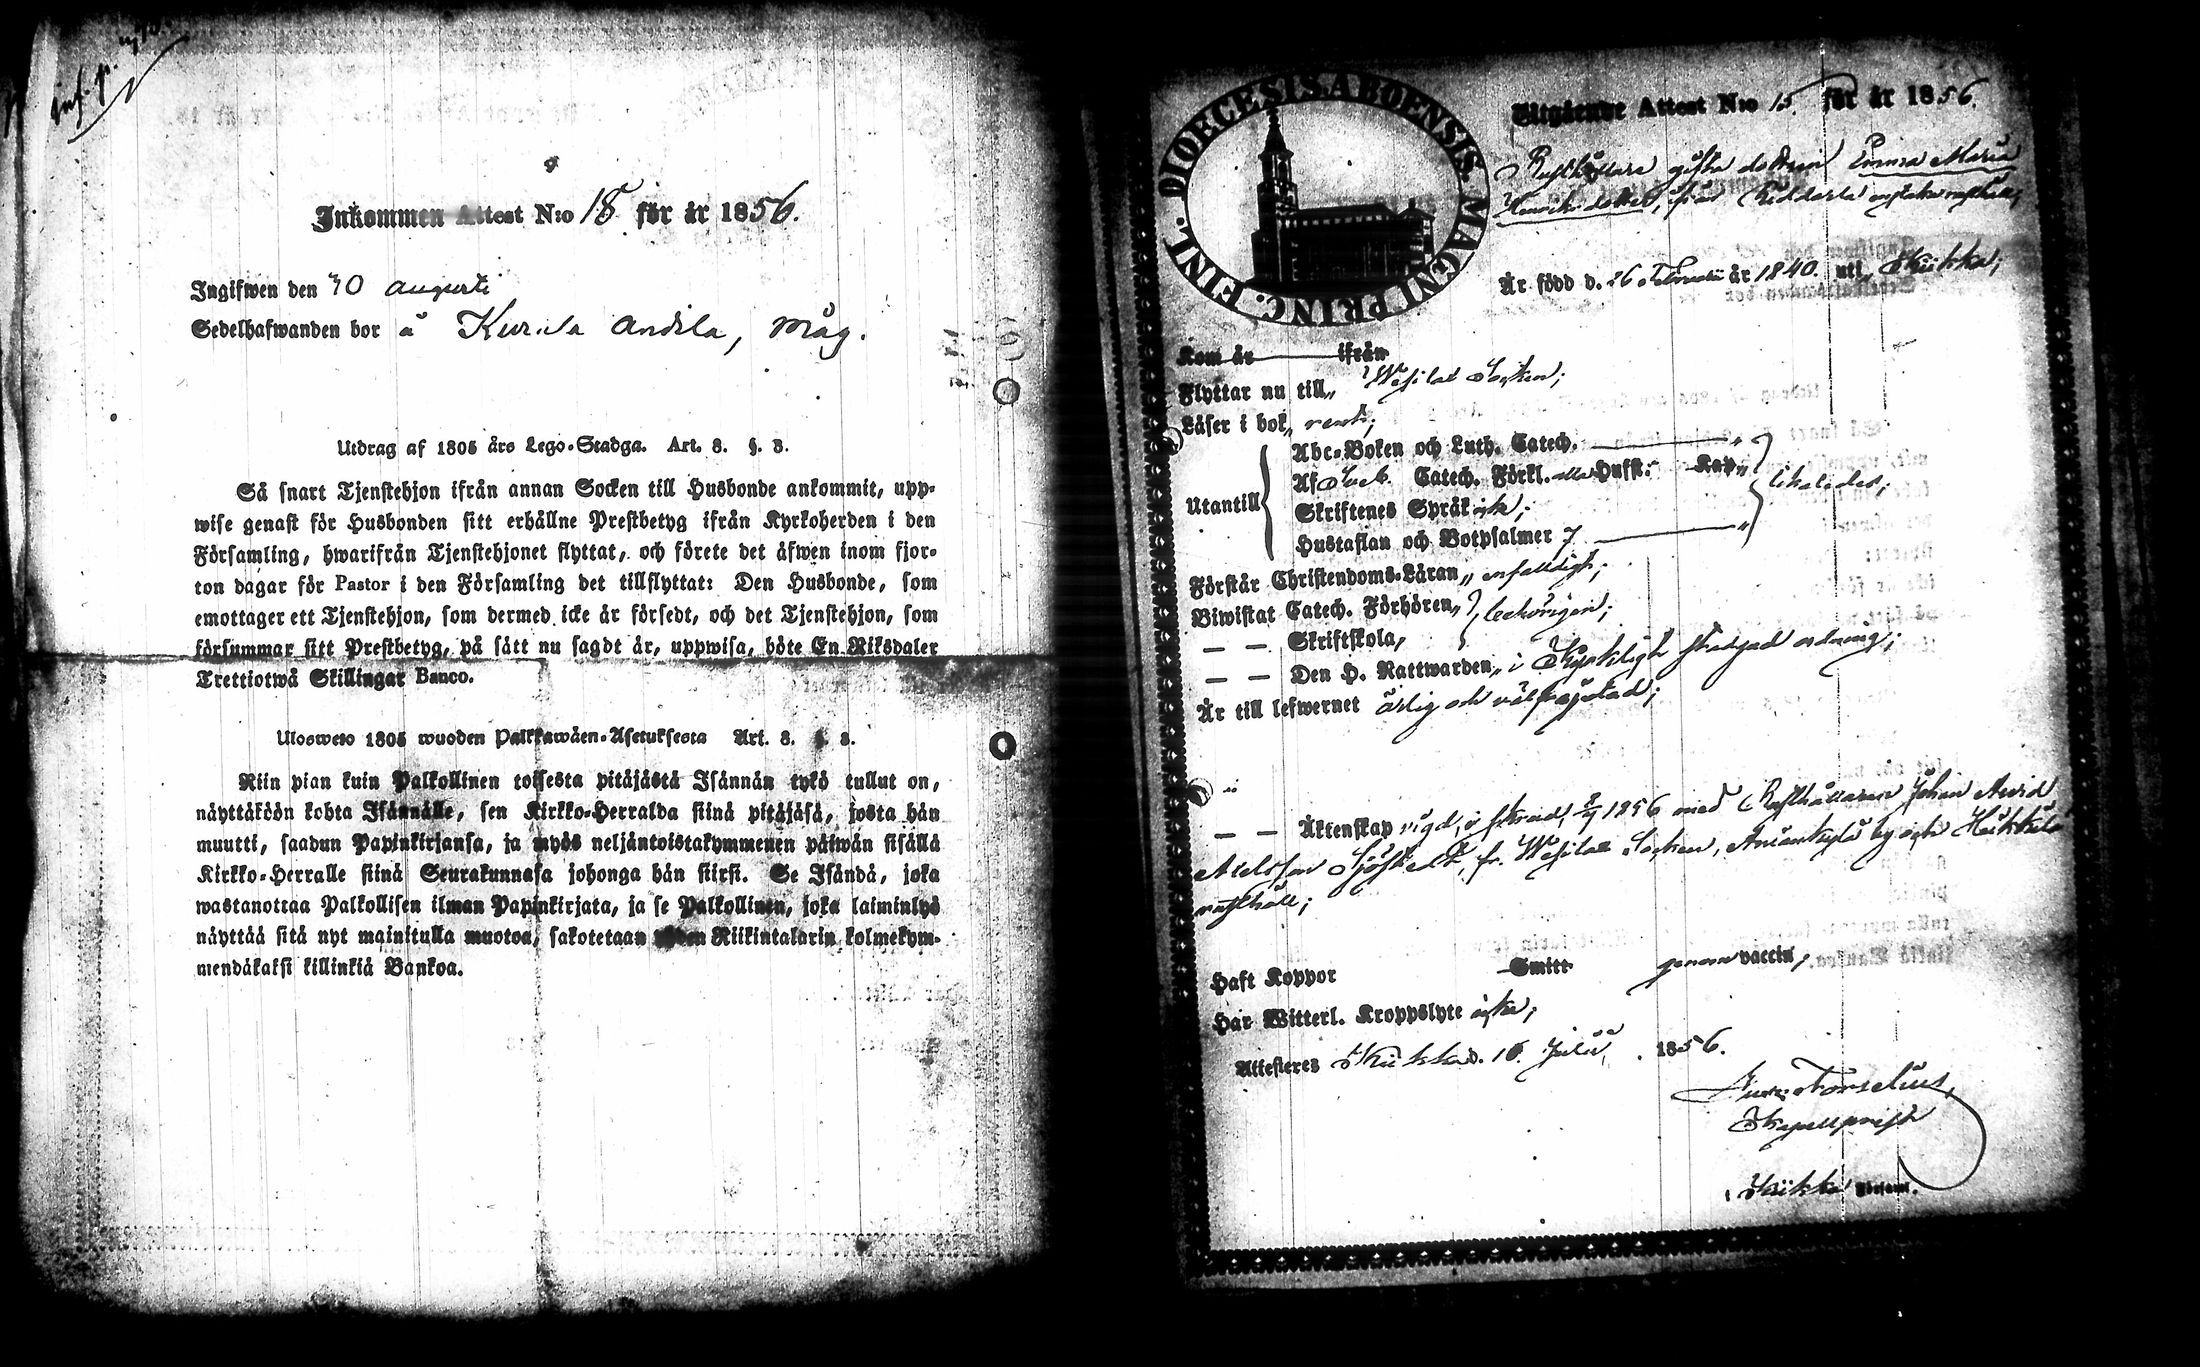 Inkommen Attest N:o 18 för år 1856.
Ingifwen den 10 augusti
Sedelhafwanden bor å Kurala Andila, måg.
Utdrag af 1805 års Lego-Stadga. Art. 8. §. 3.
Så snart Tjenstehjon ifrån annan Socken till Husbonde ankommit, upp-
wise genast för Husbonden sitt erhållne Prestbetyg ifrån Kyrkoherden i den
Församling, hwarifrån Tjenstehjonet flyttat, och förete det äfwen inom fjor-
ton dagar för Pastor i den Församling det tillflyttat: Den Husbonde, som
emottager ett Tjenstehjon, som dermed icke är försedt, och det Tjenstehjon, som
försummar sitt Prestbetyg, på sätt nu sagdt är, uppwisa, böte En Riksdaler
Trettiotwå Skillingar Banco.
Ulosweto 1805 wuoden Palkkawäen-Asetuksesta Art. 8. §. 3.
Niin pian kuin Palkollinen toisesta pitäjästä Isännän tykö tullut on,
näyttäköön kohta Isännälle, sen Kirkko-Herralda siinä pitäjäsä, josta hän
muutti, saadun Papinkirjansa, ja myös neljäntoistakymmenen päiwän sisällä
Kirkko-Herralle siinä Seurakunnasa johonga hän siirsi. Se Isändä, joka
wastanottaa Palkollisen ilman Papinkirjata, ja se Palkollinen, joka laiminlyö
näyttää sitä nyt mainitulla muotoa, sakotetaan yhden Riikintalarin kolmekym-
mendäkaksi killinkiä Bankoa.
DIOECESIS ABOENSIS MAGNI PRINC. FINL.
Utgående Attest N:o 15 för år 1856.
Rusthållare gifta dottren Emma Maria
Henriksdotter, från Ridderla rusthåll,
Är född d. 26 Februarii år 1840. uti Kiikka;
Kom år ifrån
Flyttar nu till Wesilax Socken;
Läser i bok rent;
Utantill
Abc-Boken och Luth. Catech.
Af Sveb. Catech. Förkl. alla Hufst: Kap.
Skriftenes Språk icke;
Hustaflan och Botpsalmer 7
likaledes;
Förstår Christendoms-Läran enfalldigt;
Biwistat Catech. Förhören behörigen;
— — Skriftskola,
— — Den H. Nattwarden i Kyrkligt stadgad ordning;
Är till lefwernet ärlig och välfrejdad;
— — Äktenskap vigd, 1856 med Rusthållaren Johan Arvid
Sjöstedt, fr. Wesilax Socken, by och Heikkilä
rusthåll;
Haft Koppor Smitt genom vaccin,
Har Witterl. Kroppslyte icke;
Attesteres Kiikka d. 16 Julii 1856.
Forselius,
Kapellprest
i Kiikka Församl.